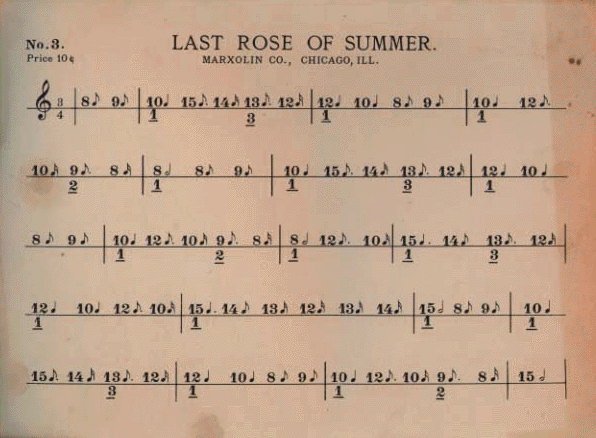 No. 3.
LAST ROSE OF SUMMER.
Price 10¢
MARXOLIN CO., CHICAGO, ILL.
3
4
8♪ 9♪ 10♩ 15♪. 14♪ 13♪. 12♪ 12♩ 10♩ 8♪ 9♪ 10♩ 12♪.
1 3 1 1
10♪ 9♪. 8♪ 8𝅗𝅥 8♪ 9♪ 10♩ 15♪. 14♪ 13♪. 12♪ 12♩ 10♩
2 1 1 3 1
8♪ 9♪ 10♩ 12♪. 10♪ 9♪. 8♪ 8𝅗𝅥 12♪. 10♪ 15♩. 14♪ 13♪. 12♪
1 2 1 1 3
12♩ 10♩ 12♪. 10♪ 15♩. 14♪ 13♪ 12♪ 13♪ 14♪ 15𝅗𝅥 8♪ 9♪ 10♩
1 1 1 1
15♪. 14♪ 13♪. 12♪ 12♩ 10♩ 8♪ 9♪ 10♩ 12♪. 10♪ 9♪. 8♪ 15𝅗𝅥
3 1 1 2